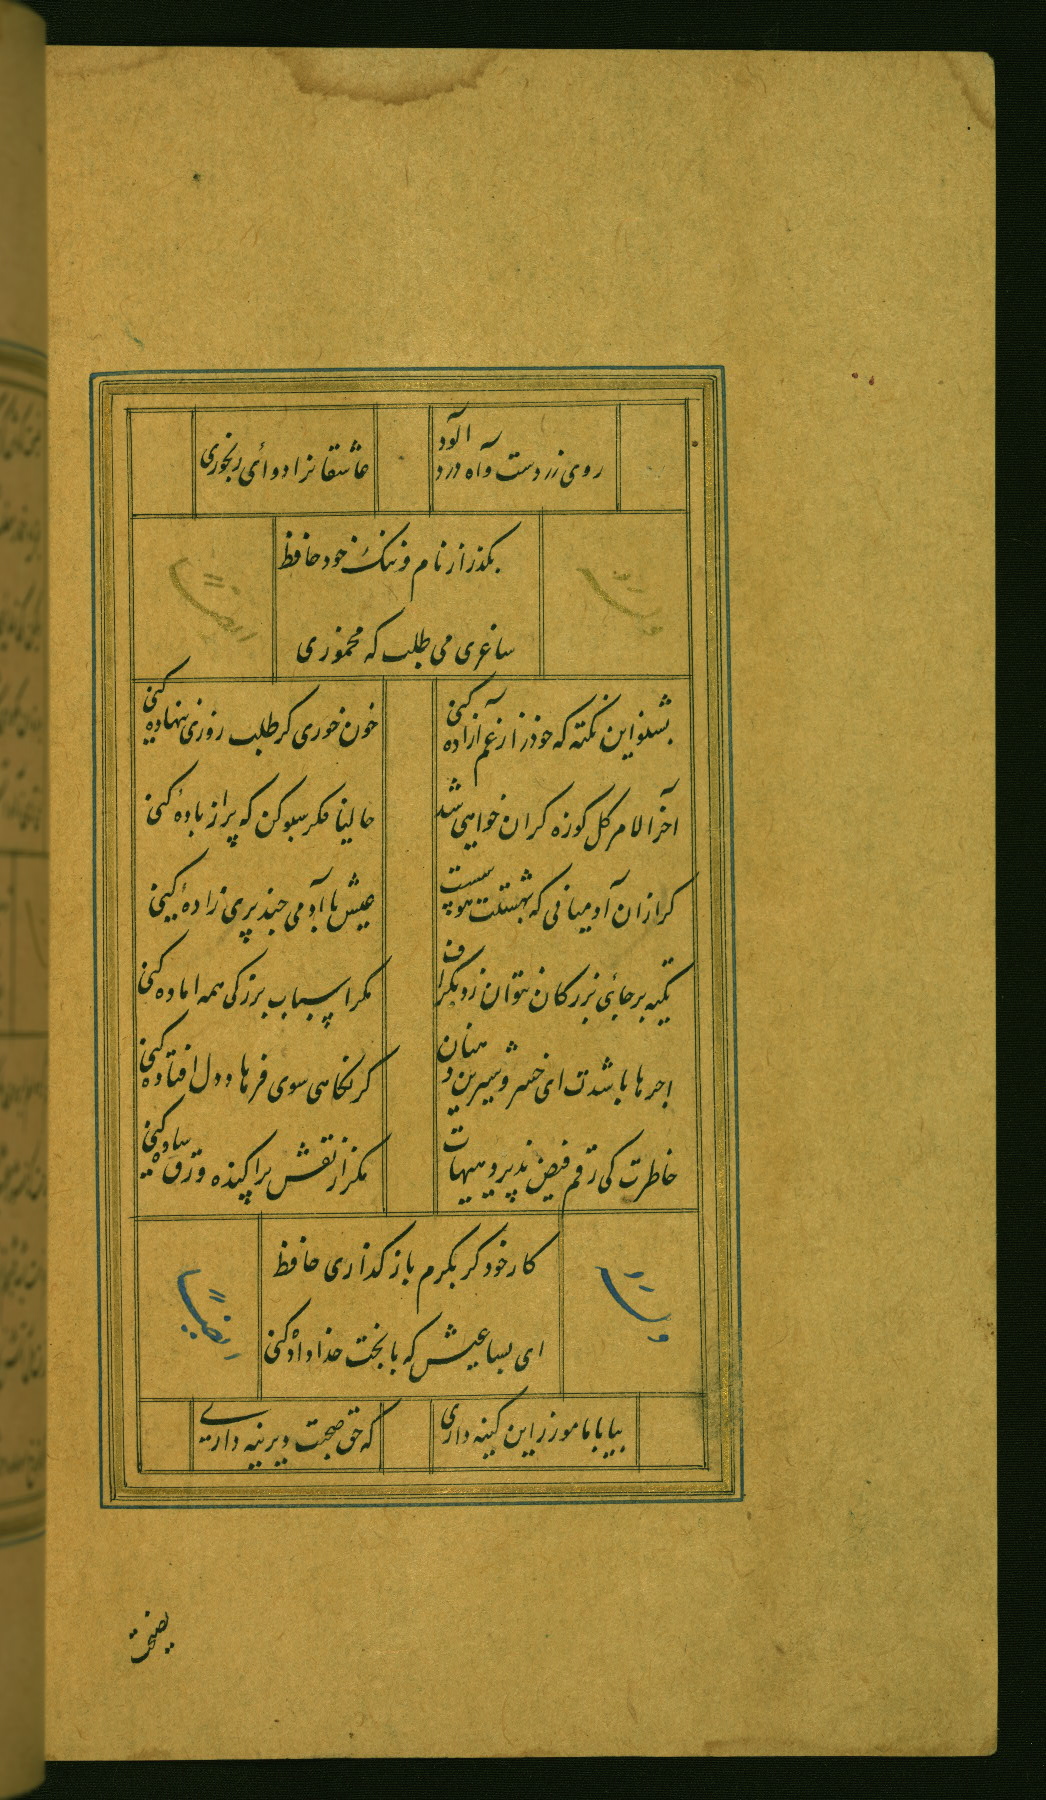 روی زردست و آه درد آلود
عاشقانرا دوائی رنجوری
بگذر از نام و ننک خود حافظ
ساغری می طلب که مخموری
وله
ایضاً
بشنو این نکته که خود را ز غم آزاده کنی
خون خوری کر طلب روزی ننهاده کنی
آخرالامر کل کوزه کران خواهی شد
حالیا فکر سبو کن که پر از باده کنی
کر ازان آدمیانی که بهشتت هوسست
عیش با آدمی چند پری زاده کنی
تکیه بر جائی بزرکان نتوان زد بکزاف
مکر اسباب بزرکی همه اماده کنی
اجرها باشدت ای خسرو شیرین دهنان
کر نکاهی سوی فرهاد دل افتاده کنی
خاطرت کی رقم فیض پذیرد هیهات
مکر از نقش پراکنده ورق ساده کنی
کار خود کر بکرم باز کذاری حافظ
ای بسا عیش که با بخت خداداد کنی
وله
ایضاً
بیا با ما مورز این کینه داری
که حق صحبت دیرینه داری
نصیحت